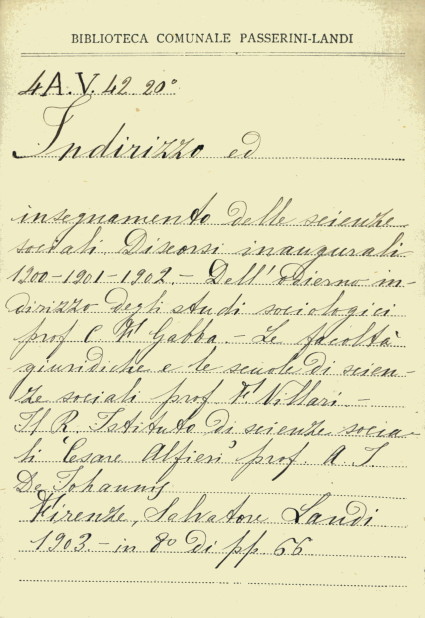 BIBLIOTECA COMUNALE PASSERINI-LANDI
4 A.V. 42. 20°
Indirizzo ed
insegnamento delle scienze
sociali Discorsi inaugurali
1900-1901-1902.- Dell'odierno in-
dirizzo degli studi sociologici
prof C F Gabba. - Le facoltà
giuridiche e le scuole di scien-
ze sociali prof F. Villari -
Il R. Istituto di scienze socia-
li "Cesare Alfieri" prof. A. J.
De Johannis
Firenze, Salvatore Landi
1903. - in 8° di pp 66